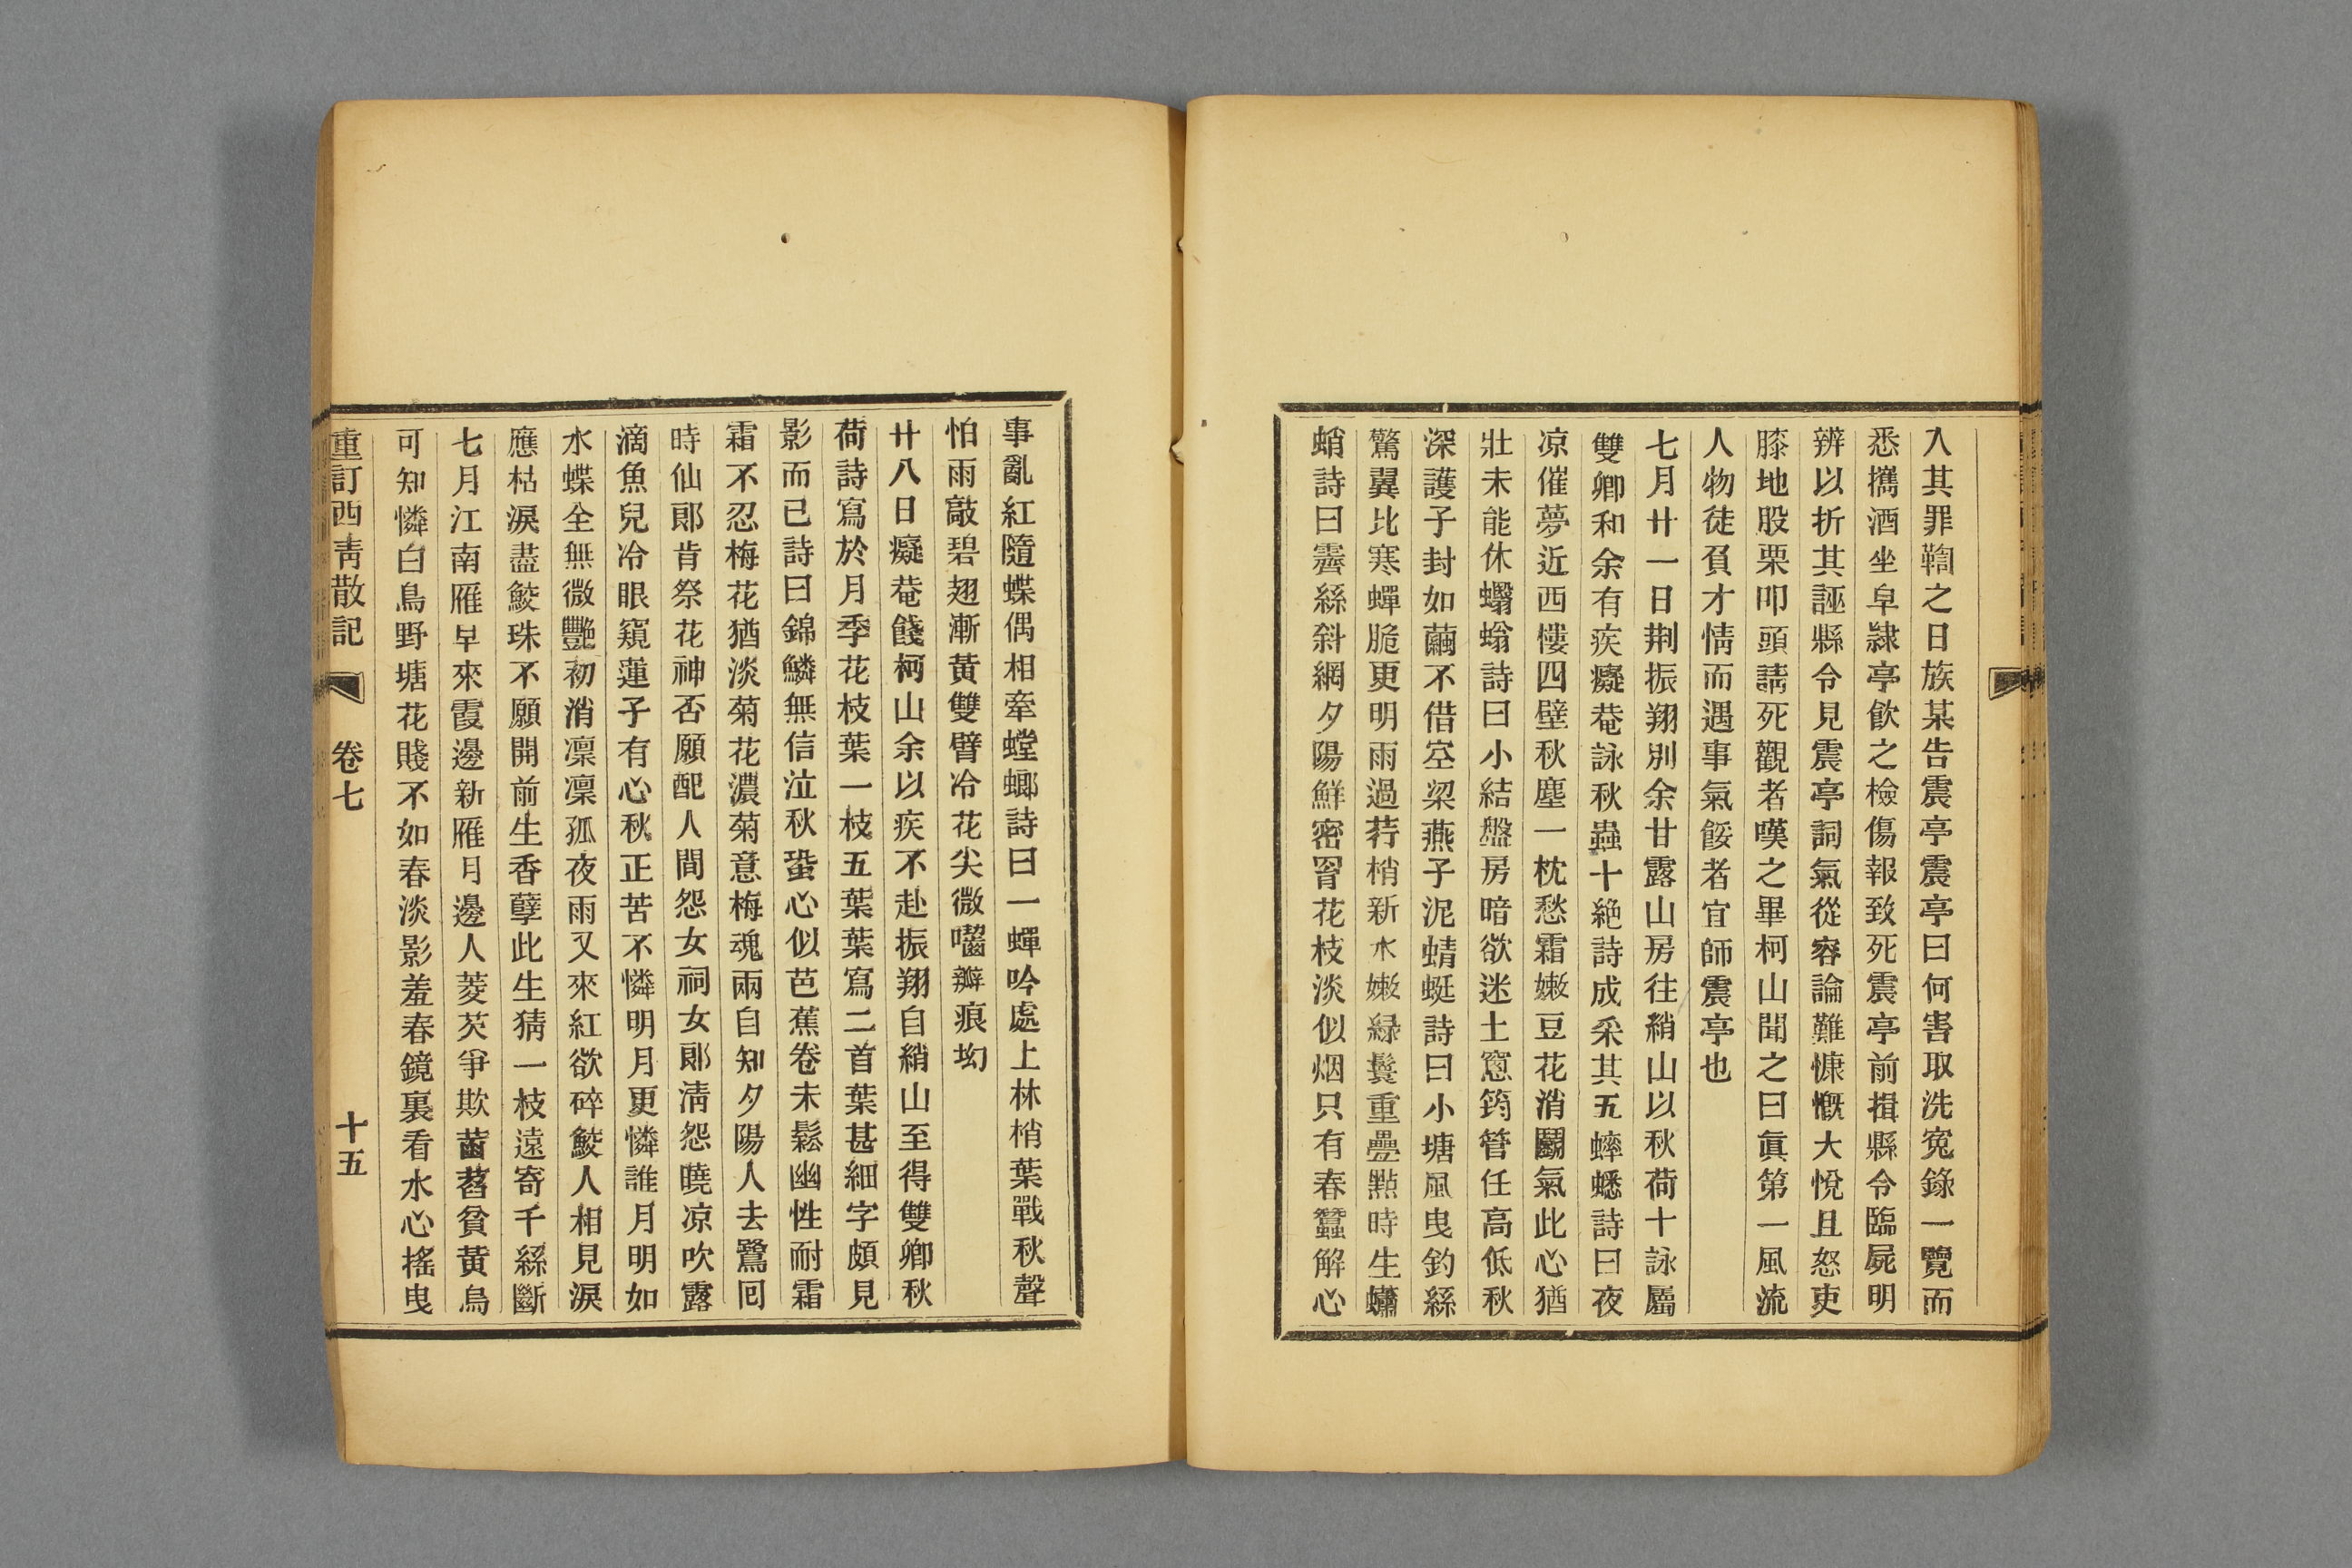 入其罪鞫之日族某告震亭震亭曰何害取洗寃錄一覽而
悉攜酒坐皁隸亭飮之檢傷報致死震亭前揖縣令臨屍明
辨以折其誣縣令見震亭詞氣從容論難慷慨大悅且怒吏
膝地股栗叩頭請死觀者嘆之畢柯山聞之曰眞第一風流
人物徒負才情而遇事氣餒者宜師震亭也
七月廿一日荆振翔別余甘露山房往綃山以秋荷十詠屬
雙卿和余有疾癡菴詠秋蟲十絶詩成采其五蟀蟋詩曰夜
凉催夢近西慺四壁秋塵一枕愁霜嫩豆花消鬭氣此心猶
壯未能休蠮螉詩曰小結盤房暗欲迷土窻筠管任高低秋
深護子封如繭不借空梁燕子泥蜻蜓詩曰小塘風曳釣絲
驚翼比寒蟬脆更明雨過荇梢新水嫩綠鬟重疊點時生蠨
蛸詩曰霽絲斜網夕陽鮮密罥花枝淡似烟只有春蠶解心
事亂紅隨蝶偶相牽螳螂詩曰一蟬吟處上林梢葉戰秋聲
怕雨敲碧翅漸黃雙臂冷花尖微囓瓣痕坳
廿八日癡菴餞柯山余以疾不赴振翔自綃山至得雙卿秋
荷詩寫於月季花枝葉一枝五葉葉寫二首葉甚細字頗見
影而已詩曰錦鱗無信泣秋蛩心似芭蕉卷未鬆幽性耐霜
霜不忍梅花猶淡菊花濃菊意梅魂兩自知夕陽人去鷺回
時仙郞肯祭花神否願配人間怨女祠女郞淸怨曉凉吹露
滴魚兒冷眼窺蓮子有心秋正苦不憐明月更憐誰月明如
水蝶全無微艷初消凛凛孤夜雨又來紅欲碎鮫人相見淚
應枯淚盡鮫珠不願開前生香孽此生猜一枝遠寄千絲斷
七月江南雁早來霞邊新雁月邊人菱芡爭欺菡萏貧黃鳥
可知憐白鳥野塘花賤不如春淡影羞春鏡裏看水心搖曳
重訂西靑散記 卷七 十五